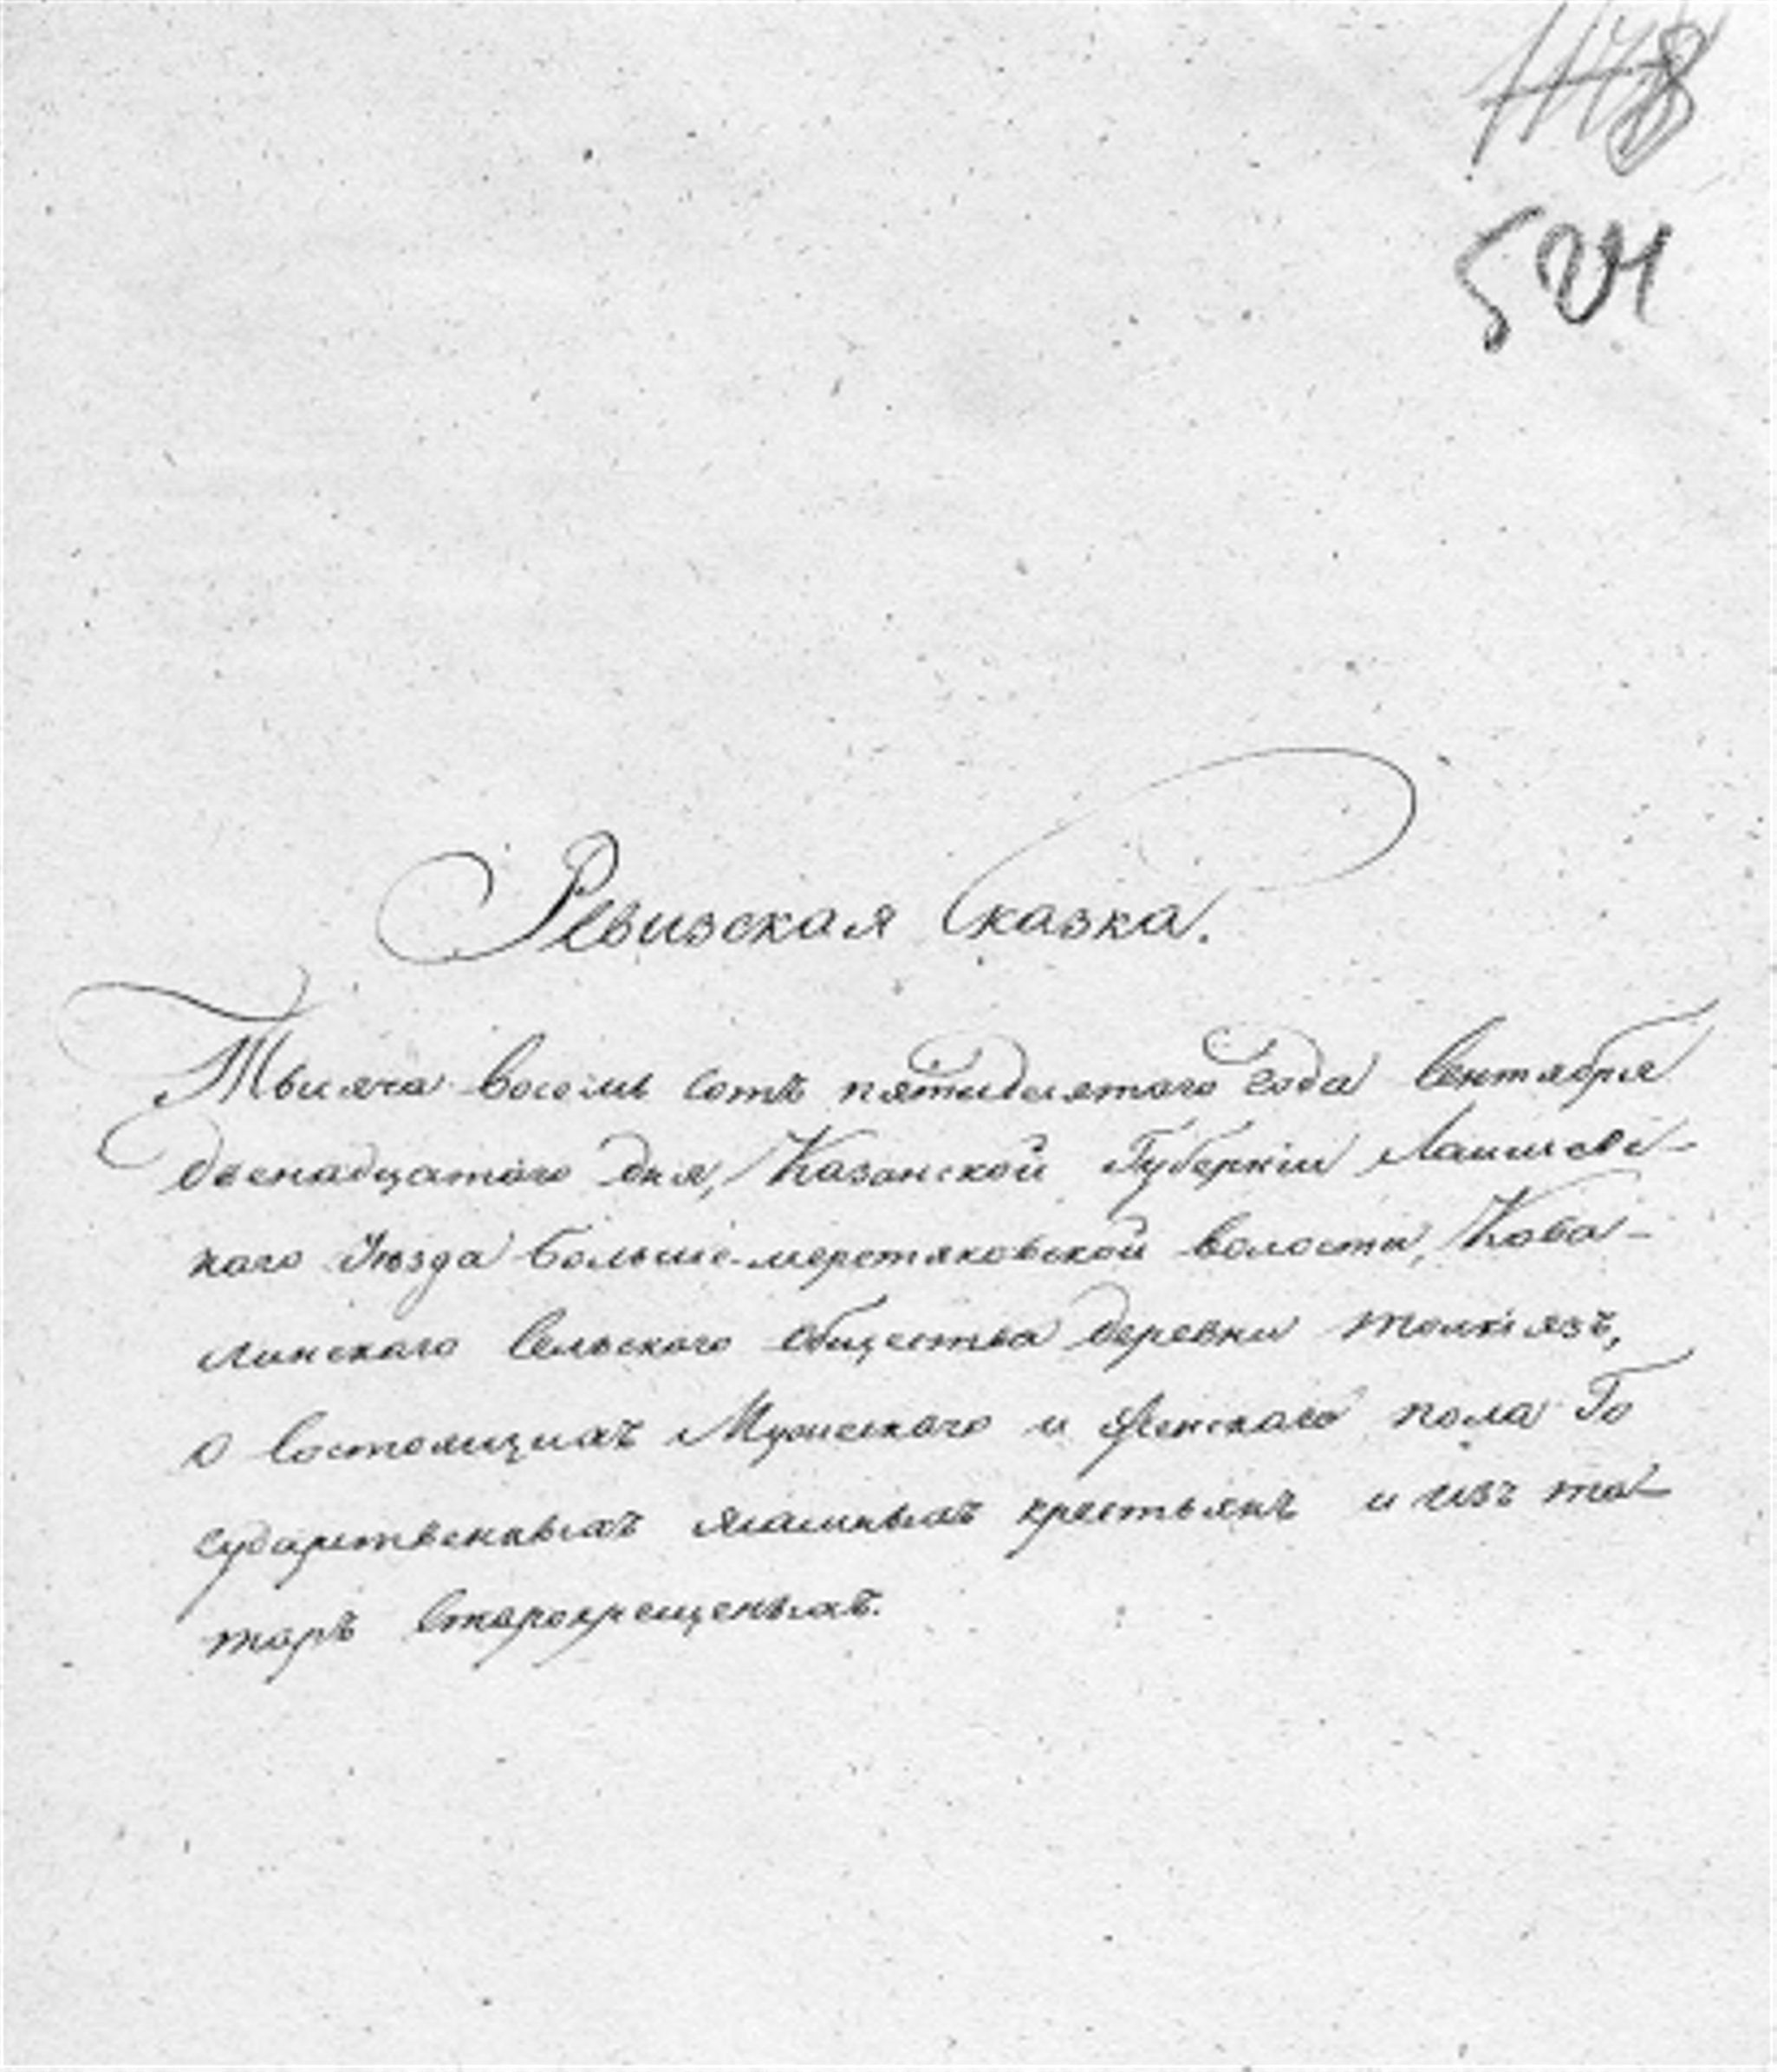 524
Ревизская Сказка.
Тысяча восемь сотъ пятидесятаго года Сентября
двенадцатаго дня, Казанской Губернiи Лаишевс-
каго Уѣзда больше-меретяковской волости, Коба-
линскаго Сельскаго общества деревни толкiязъ,
о Состоящихъ Мужескаго и Женскаго пола Го
сударственныхъ ясашныхъ крестьянъ и изъ та-
таръ Старокрещеныхъ.